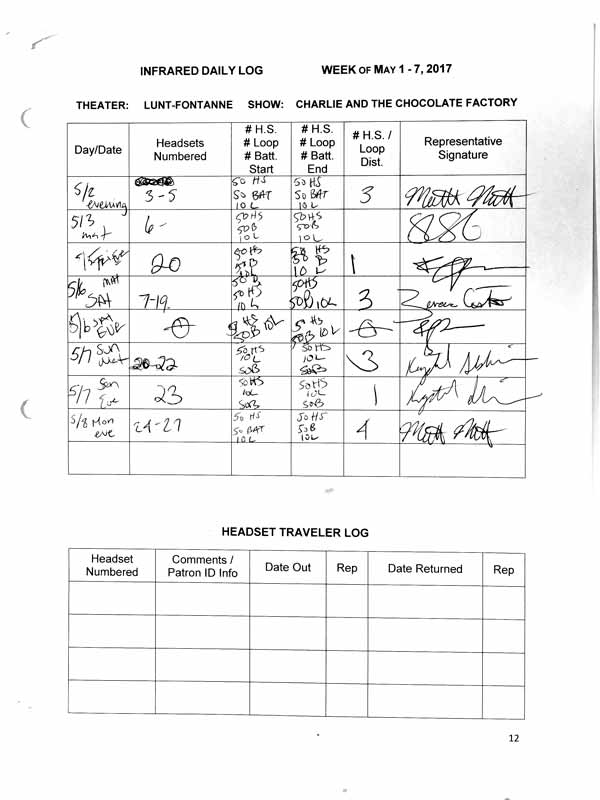 INFRARED DAILY LOG WEEK OF MAY 1 - 7, 2017
THEATER: LUNT-FONTANNE SHOW: CHARLIE AND THE CHOCOLATE FACTORY
Day/Date Headsets Numbered # H.S. # Loop # Batt. Start # H.S. # Loop # Batt. End # H.S. / Loop Dist. Representative Signature
5/2 evening 3-5 50 HS 50 BAT 10 L 50 HS 50 BAT 10 L 3
5/3 mat 6- 50HS 50B 10L 50HS 50B 10L
20 50HS 50B 10L 50 HS 50 B 10 L 1
5/6 MAT SAT 7-19. 50 HS 10L 50HS 50B 10L 3
5/6 SAT EVE 0 HS 50B 10L 5 HS 50B 10L 0
5/7 Sun mat 20-22 50HS 10L 50B 50HS 10L 50B 3
5/7 Sun Eve 23 50HS 10L 50B 50HS 10L 50B 1
5/8 Mon eve 24-27 50 HS 50 BAT 10L 50HS 50B 10L 4 Matt Matt
HEADSET TRAVELER LOG
Headset Numbered Comments / Patron ID Info Date Out Rep Date Returned Rep
12